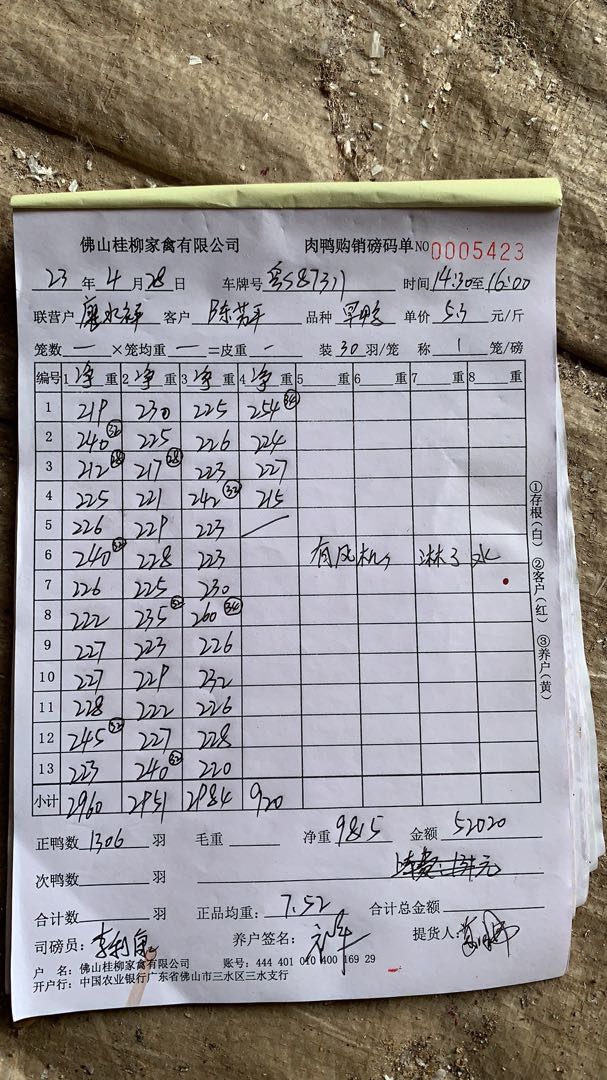 佛山桂柳家禽有限公司 肉鸭购销磅码单 NO 0005423
23 年 4 月 28 日 车牌号 粤S87311 时间 14:30至16:00
联营户 客户 陈芳平 品种 旱鸭 单价 5.3 元/斤
笼数 一 ×笼均重 一 =皮重 一 装 30 羽/笼 称 1 笼/磅
编号 1 净 重 2 净 重 3 净 重 4 净 重 5 重 6 重 7 重 8 重
1 219 230 225 254 34
2 240 32 225 226 224
3 212 28 217 28 223 227
4 225 221 242 32 215
5 226 229 223
6 240 32 228 223 有风机, 淋了水
7 226 225 230
8 222 235 32 260 34
9 227 223 226
10 227 229 232
11 228 222 226
12 245 32 227 228
13 223 240 32 220
小计 2960 2951 2984 920
①存根(白) ②客户(红) ③养户(黄)
正鸭数 1306 羽 毛重 净重 9815 金额 52020
次鸭数 羽
合计数 羽 正品均重: 7.52 合计总金额
司磅员: 养户签名: 提货人:
户 名: 佛山桂柳家禽有限公司 账号: 444 401 010 400 169 29
开户行: 中国农业银行广东省佛山市三水区三水支行